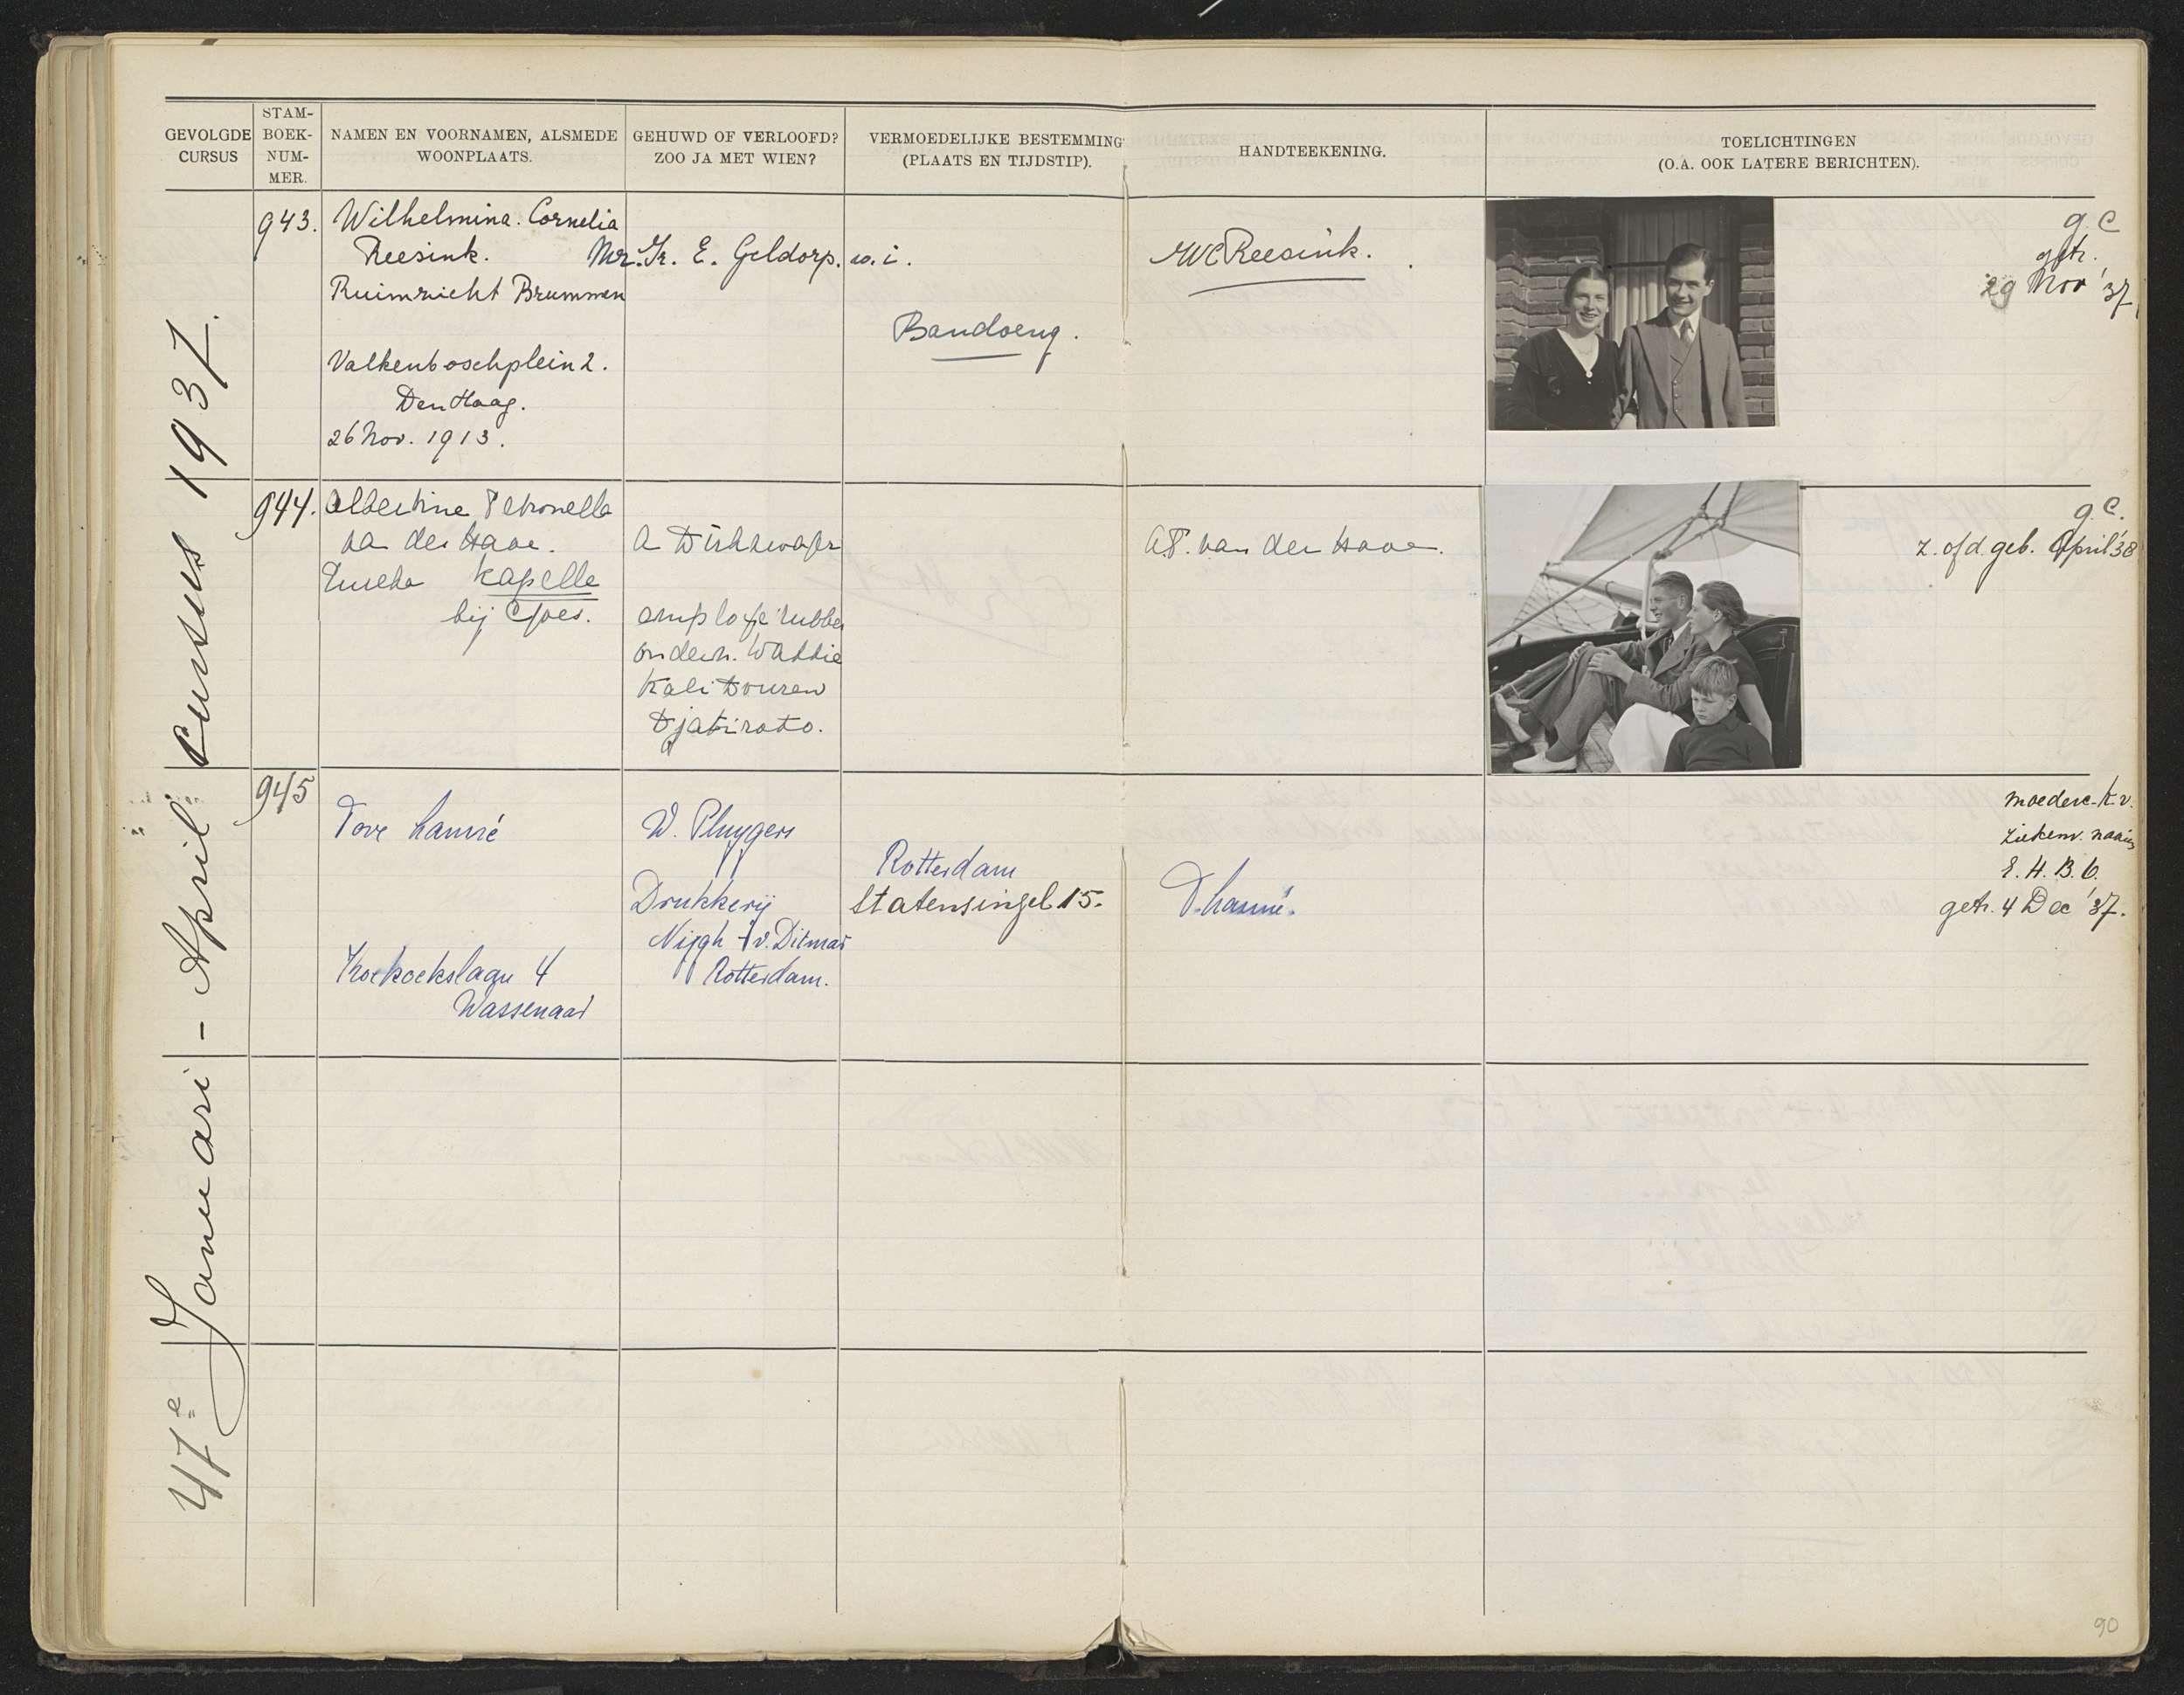 GEVOLGDE CURSUS
STAM-BOEK-NUM-MER.
NAMEN EN VOORNAMEN, ALSMEDE WOONPLAATS.
GEHUWD OF VERLOOFD? ZOO JA MET WIEN?
VERMOEDELIJKE BESTEMMING (PLAATS EN TIJDSTIP).
HANDTEEKENING.
TOELICHTINGEN (O.A. OOK LATERE BERICHTEN).
47e Januari - April cursus 1937.
943.
Wilhelmina. Cornelia
Reesink.
Ruimzicht Brummen
Valkenboschplein 2.
Den Haag.
26 Nov. 1913.
Mr. Ir. E. Geldorp. w.i.
Bandoeng.
WC Reesink.
g.c
getr.
29 Nov '37
944.
Albertine Petronella
van der Have.
Kapelle
bij Goes.
A Dirkzwager
employé rubber
ondern. Wattie
Kali Douren
Djatiroto.
A.P. van der Have.
g.c.
z. of d. geb. April '38
945
Tove
W. Pluygers
Drukkerij
Nijgh + v. Ditmar
Rotterdam.
Rotterdam
Statensingel 15.
Koekoekslaan 4
Wassenaar
moederc. k.v.
ziekenv. naaien
E.H.B.O.
getr. 4 Dec '37.
90